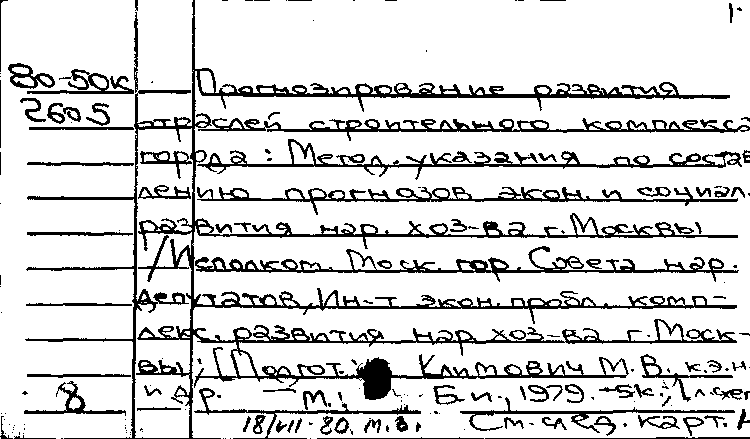 80-50к Прогнозирование развития
2605 отраслей строительного комплекса
города: Метод. указания по состав-
лению прогнозов экон. и социал.
развития нар. хоз-ва г. Москвы
/Исполком. Моск. гор. Совета нар.
депутатов, Ин-т экон. пробл. комп-
лекс. развития нар хоз-ва г. Моск-
вы; [Подгот.: Климович М.В., к.э.н.
8 и др. — М.: Б.и., 1979. -5к;
18/VII-80. м.з. См. след. карт.